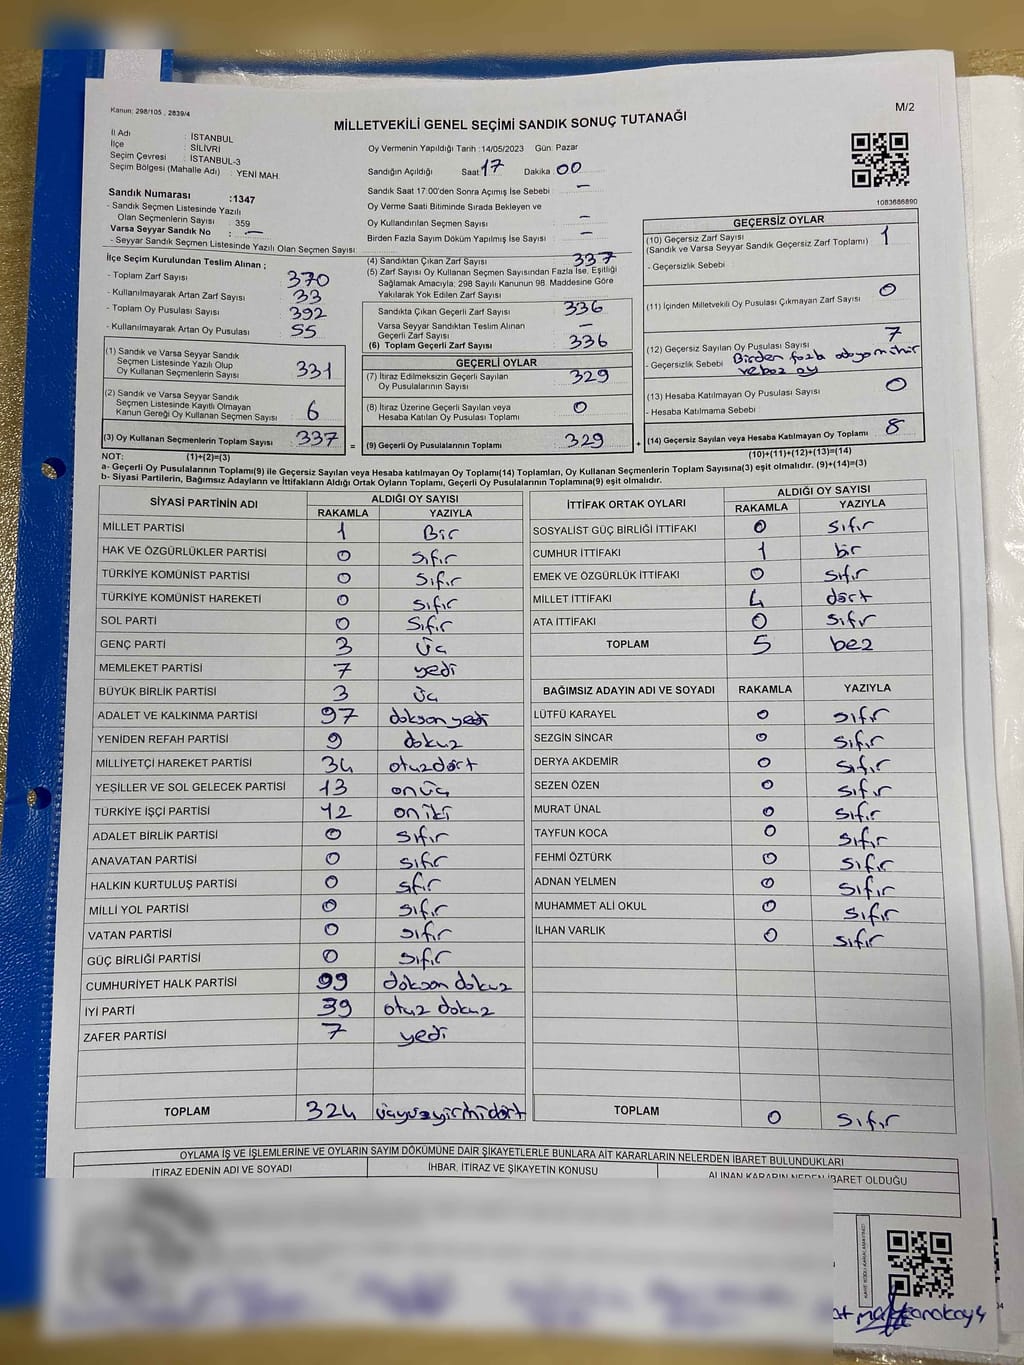 Kanun: 298/105 , 2839/4
M/2
MİLLETVEKİLİ GENEL SEÇİMİ SANDIK SONUÇ TUTANAĞI
İl Adı : İSTANBUL
İlçe : SİLİVRİ
Seçim Çevresi : İSTANBUL-3
Seçim Bölgesi (Mahalle Adı) : YENİ MAH.
Sandık Numarası :1347
- Sandık Seçmen Listesinde Yazılı
Olan Seçmenlerin Sayısı : 359
Varsa Seyyar Sandık No : -
- Seyyar Sandık Seçmen Listesinde Yazılı Olan Seçmen Sayısı
Oy Vermenin Yapıldığı Tarih :14/05/2023 Gün: Pazar
Sandığın Açıldığı Saat 17 Dakika 00
Sandık Saat 17:00'den Sonra Açımış İse Sebebi -
Oy Verme Saati Bitiminde Sırada Bekleyen ve
Oy Kullandırılan Seçmen Sayısı -
Birden Fazla Sayım Döküm Yapılmış İse Sayısı -
1083686890
İlçe Seçim Kurulundan Teslim Alınan ;
- Toplam Zarf Sayısı : 370
- Kullanılmayarak Artan Zarf Sayısı : 33
- Toplam Oy Pusulası Sayısı : 392
- Kullanılmayarak Artan Oy Pusulası : 55
(1) Sandık ve Varsa Seyyar Sandık
Seçmen Listesinde Yazılı Olup
Oy Kullanan Seçmenlerin Sayısı : 331
(2) Sandık ve Varsa Seyyar Sandık
Seçmen Listesinde Kayıtlı Olmayan
Kanun Gereği Oy Kullanan Seçmen Sayısı : 6
(3) Oy Kullanan Seçmenlerin Toplam Sayısı : 337 =
(4) Sandıktan Çıkan Zarf Sayısı : 337
(5) Zarf Sayısı Oy Kullanan Seçmen Sayısından Fazla İse, Eşitliği
Sağlamak Amacıyla; 298 Sayılı Kanunun 98. Maddesine Göre
Yakılarak Yok Edilen Zarf Sayısı :
Sandıkta Çıkan Geçerli Zarf Sayısı : 336
Varsa Seyyar Sandıktan Teslim Alınan
Geçerli Zarf Sayısı : -
(6) Toplam Geçerli Zarf Sayısı : 336
GEÇERLİ OYLAR
(7) İtiraz Edilmeksizin Geçerli Sayılan
Oy Pusulalarının Sayısı : 329
(8) İtiraz Üzerine Geçerli Sayılan veya
Hesaba Katılan Oy Pusulası Toplamı : 0
(9) Geçerli Oy Pusulalarının Toplamı : 329 +
GEÇERSİZ OYLAR
(10) Geçersiz Zarf Sayısı : 1
(Sandık ve Varsa Seyyar Sandık Geçersiz Zarf Toplamı)
- Geçersizlik Sebebi :
(11) İçinden Milletvekili Oy Pusulası Çıkmayan Zarf Sayısı : 0
(12) Geçersiz Sayılan Oy Pusulası Sayısı : 7
- Geçersizlik Sebebi : Birden fazla adaya mühür
ve boz oy
(13) Hesaba Katılmayan Oy Pusulası Sayısı : 0
- Hesaba Katılmama Sebebi :
(14) Geçersiz Sayılan veya Hesaba Katılmayan Oy Toplamı : 8
NOT: (1)+(2)=(3)
(10)+(11)+(12)+(13)=(14)
a- Geçerli Oy Pusulalarının Toplamı(9) ile Geçersiz Sayılan veya Hesaba katılmayan Oy Toplamı(14) Toplamları, Oy Kullanan Seçmenlerin Toplam Sayısına(3) eşit olmalıdır. (9)+(14)=(3)
b- Siyasi Partilerin, Bağımsız Adayların ve İttifakların Aldığı Ortak Oyların Toplamı, Geçerli Oy Pusulalarının Toplamına(9) eşit olmalıdır.
SİYASİ PARTİNİN ADI ALDIĞI OY SAYISI
RAKAMLA YAZIYLA
MİLLET PARTİSİ 1 Bir
HAK VE ÖZGÜRLÜKLER PARTİSİ 0 sıfır
TÜRKİYE KOMÜNİST PARTİSİ 0 sıfır
TÜRKİYE KOMÜNİST HAREKETİ 0 sıfır
SOL PARTİ 0 sıfır
GENÇ PARTİ 3 üç
MEMLEKET PARTİSİ 7 yedi
BÜYÜK BİRLİK PARTİSİ 3 üç
ADALET VE KALKINMA PARTİSİ 97 doksan yedi
YENİDEN REFAH PARTİSİ 9 dokuz
MİLLİYETÇİ HAREKET PARTİSİ 34 otuzdört
YEŞİLLER VE SOL GELECEK PARTİSİ 13 onüç
TÜRKİYE İŞÇİ PARTİSİ 12 oniki
ADALET BİRLİK PARTİSİ 0 sıfır
ANAVATAN PARTİSİ 0 sıfır
HALKIN KURTULUŞ PARTİSİ 0 sfır
MİLLİ YOL PARTİSİ 0 sıfır
VATAN PARTİSİ 0 sıfır
GÜÇ BİRLİĞİ PARTİSİ 0 sıfır
CUMHURİYET HALK PARTİSİ 99 doksan dokuz
İYİ PARTİ 39 otuz dokuz
ZAFER PARTİSİ 7 yedi
TOPLAM 324 üçyüzyirmidört
İTTİFAK ORTAK OYLARI ALDIĞI OY SAYISI
RAKAMLA YAZIYLA
SOSYALİST GÜÇ BİRLİĞİ İTTİFAKI 0 sıfır
CUMHUR İTTİFAKI 1 bir
EMEK VE ÖZGÜRLÜK İTTİFAKI 0 sıfır
MİLLET İTTİFAKI 4 dört
ATA İTTİFAKI 0 sıfır
TOPLAM 5 beş
BAĞIMSIZ ADAYIN ADI VE SOYADI RAKAMLA YAZIYLA
LÜTFÜ KARAYEL 0 sıfır
SEZGİN SİNCAR 0 sıfır
DERYA AKDEMİR 0 sıfır
SEZEN ÖZEN 0 sıfır
MURAT ÜNAL 0 sıfır
TAYFUN KOCA 0 sıfır
FEHMİ ÖZTÜRK 0 sıfır
ADNAN YELMEN 0 sıfır
MUHAMMET ALİ OKUL 0 sıfır
İLHAN VARLIK 0 sıfır
TOPLAM 0 sıfır
OYLAMA İŞ VE İŞLEMLERİNE VE OYLARIN SAYIM DÖKÜMÜNE DAİR ŞİKAYETLERLE BUNLARA AİT KARARLARIN NELERDEN İBARET BULUNDUKLARI
İTİRAZ EDENİN ADI VE SOYADI İHBAR, İTİRAZ VE ŞİKAYETİN KONUSU ALINAN KARARIN NEDEN İBARET OLDUĞU